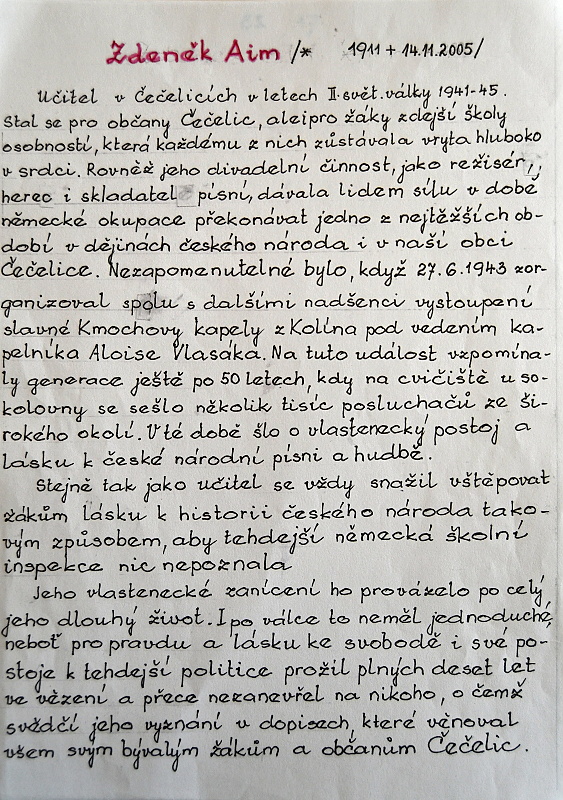 Zdeněk Aim /* 1911 + 14.11.2005/
Učitel v Čečelicích v letech II. svět. války 1941-45.
Stal se pro občany Čečelic, ale i pro žáky zdejší školy
osobností, která každému z nich zůstávala vryta hluboko
v srdci. Rovněž jeho divadelní činnost, jako režisér,
herec i skladatel písní, dávala lidem sílu v době
německé okupace překonávat jedno z nejtěžších ob-
dobí v dějinách českého národa i v naší obci
Čečelice. Nezapomenutelné bylo, když 27.6.1943 zor-
ganizoval spolu s dalšími nadšenci vystoupení
slavné Kmochovy kapely z Kolína pod vedením ka-
pelníka Aloise Vlasáka. Na tuto událost vzpomína-
ly generace ještě po 50 letech, kdy na cvičiště u so-
kolovny se sešlo několik tisíc posluchačů ze ši-
rokého okolí. V té době šlo o vlastenecký postoj a
lásku k české národní písni a hudbě.
Stejně tak jako učitel se vždy snažil vštěpovat
žákům lásku k historii českého národa tako-
vým způsobem, aby tehdejší německá školní
inspekce nic nepoznala
Jeho vlastenecké zanícení ho provázelo po celý
jeho dlouhý život. I po válce to neměl jednoduché,
neboť pro pravdu a lásku ke svobodě i své po-
stoje k tehdejší politice prožil plných deset let
ve vězení a přece nezanevřel na nikoho, o čemž
svědčí jeho vyznání v dopisech, které věnoval
všem svým bývalým žákům a občanům Čečelic.